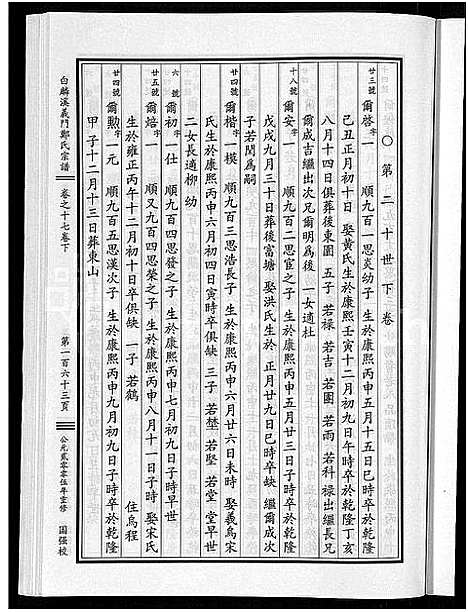 〇第二十世下卷
廿三號 爾啓字一 順九百一思炎幼子 生於康熙丙申五月十五日巳時卒於乾隆
己丑正月初十日 娶黃氏生於康熙壬寅十二月初九日午時卒於乾隆丁亥
八月十四日俱葬後東園 五子 若祿 若吉 若園 若雨 若科 祿出繼長兄
爾成吉繼出次兄爾明為後 一女適杜
十八號 爾安字一 順九百二思宦之子 生於康熙丙申五月廿三日子時卒於乾隆
戊戌九月三十日葬後富塘 娶洪氏生於 正月廿九日巳時卒缺 繼爾成次
子若閏為嗣
廿四號 爾楷字一模 順九百三思浩長子 生於康熙丙申六月廿六日未時 娶義烏宋
氏生於康熙丙申六月初四日寅時卒俱缺 三子 若埜 若堅 若堂 堂早世
二女長適柳 幼
六號 爾初字一仕 順九百四思發之子 生於康熙丙申七月初九日子時早世
廿五號 爾焙字一 順又九百四思榮之子 生於康熙丙申八月十一日子時 娶宋氏
生於雍正丙午十二月初十日卒俱缺 一子 若鶴 住烏程
廿四號 爾勲字一元 順九百五思漢次子 生於康熙丙申九月初九日子時卒於乾隆
甲子十二月十三日葬東山
白麟溪義門鄭氏宗譜
卷之十七卷下
第一百六十三頁
公元貳零零伍年重修 國强校